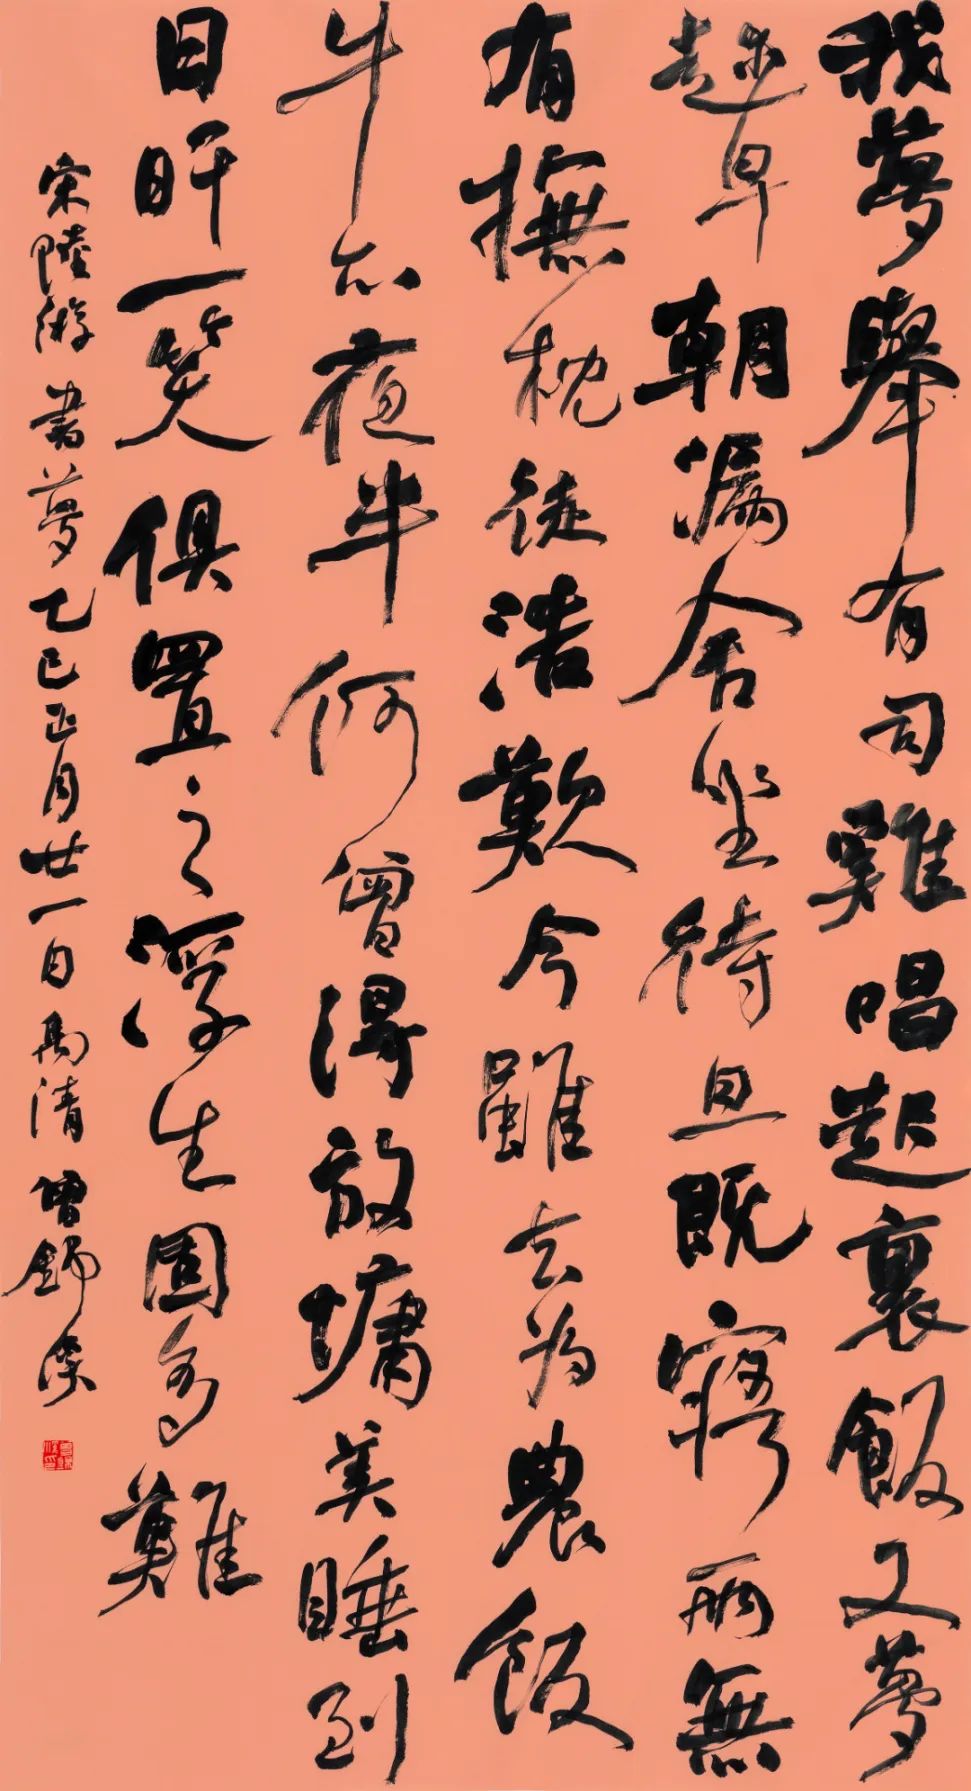 我夢舉有司雞唱起裹飯又夢
趨早朝漏舍坐待旦既寤兩無
有撫枕徒浩歎今雖去為農飯
牛亦夜半何曾得放慵美睡到
日旰一笑俱置之浮生固多難
宋陸游書夢乙巳正月廿一日禹清曾錦溪